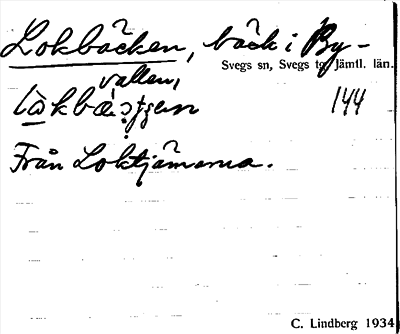 Lokbäcken, bäck i By-
vallen,
Svegs sn, Svegs tg, Jämtl. län.
144
Från Loktjärnarna.
C. Lindberg 1934